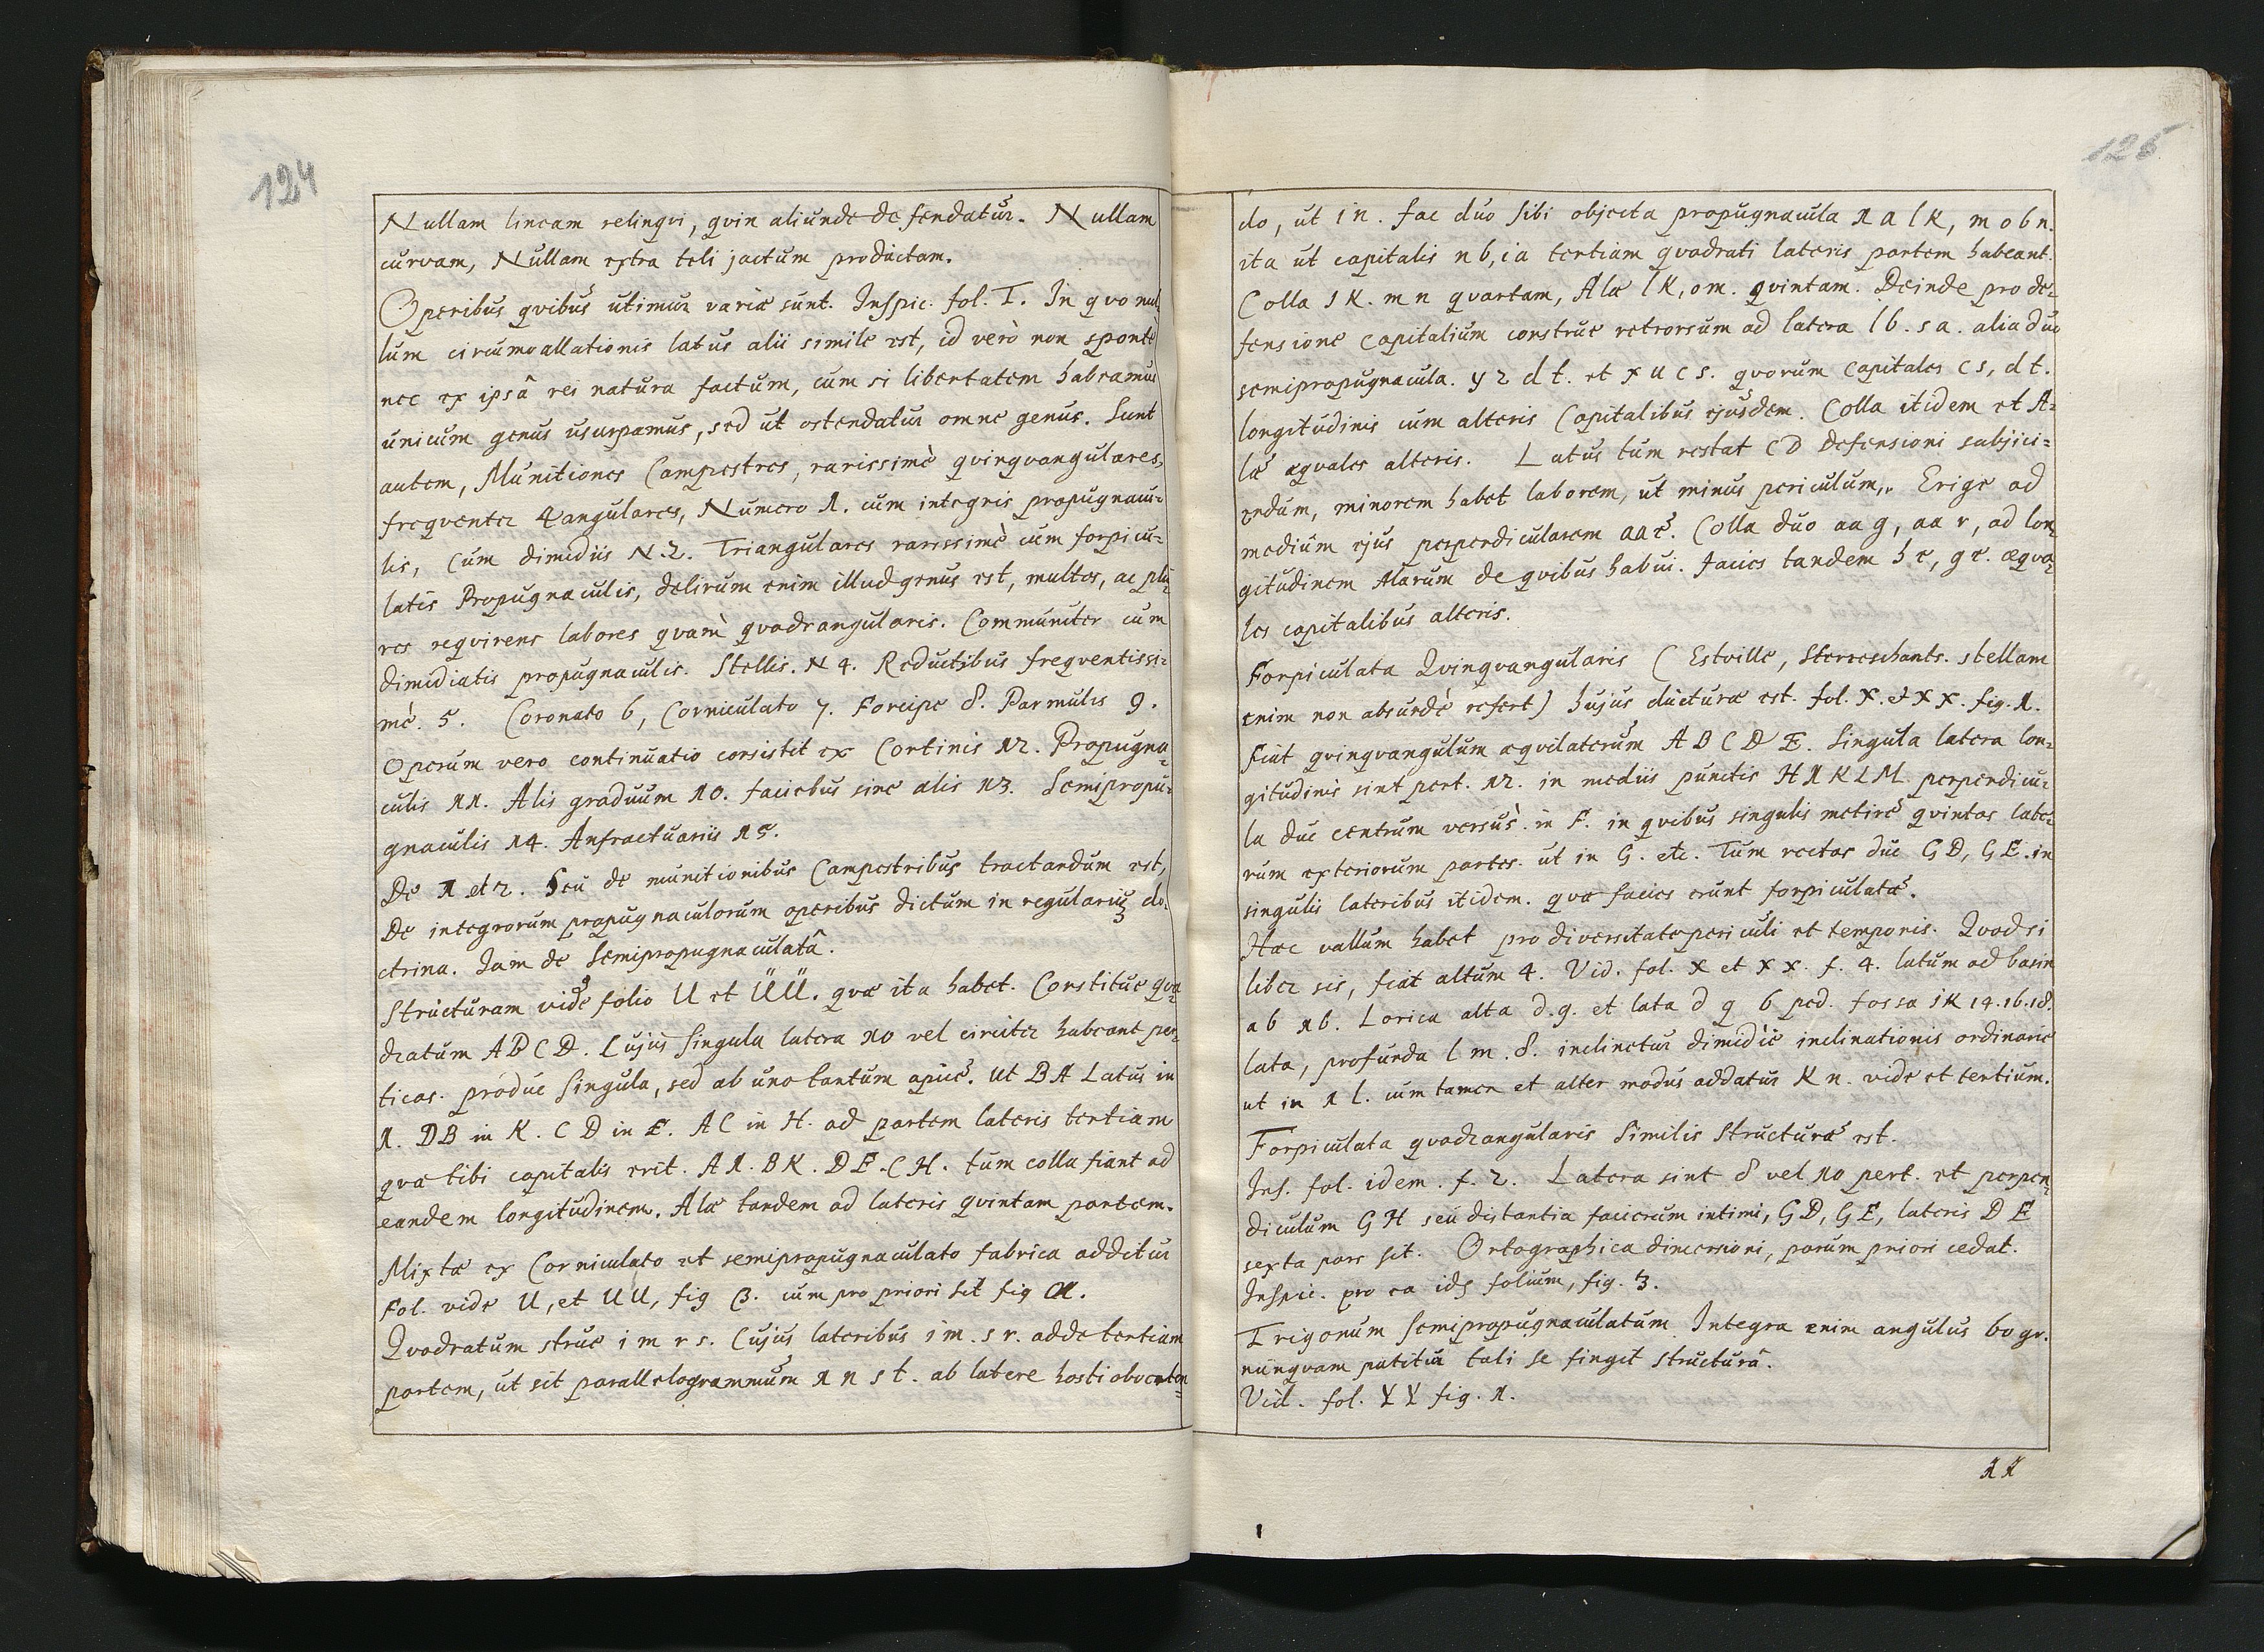 124
Nullam lineam relinqvi, qvin aliunde defendatur. Nullam
curvam, Nullam extra teli jactum productam.
Operibus qvibus utimur varia sunt. Inspic. fol. T. In qvo nul-
lum circumvallationis latus alii simile est, id verò non spontè
nec ex ipsâ rei natura factum, cum si libertatem habeamus
unicum genus usurpamus, sed ut ostendatur omne genus. Sunt
autem, Munitiones Campestres, rarissimè qvinqvangulares,
freqventer 4angulares, Numero 1. cum integris propugnacu-
lis, Cum dimidiis N. 2. Triangulares rarissimè cum forpicu-
latis Propugnaculis, delirum enim illud genus est, multos, ac plu-
res reqvirens labores qvam qvadrangularis. Communiter cum
dimidiatis propugnaculis. Stellis. N 4. Reductibus freqventissi-
mè. 5. Coronato 6, Corniculato 7. Forcipe 8. Parmulis 9.
Operum vero continuatio consistit ex Cortinis 12. Propugna-
culis 11. Alis graduum 10. faciebus sine alis 13. Semipropu-
gnaculis 14. Anfractuariis 15.
De 1 et 2. Seu de munitionibus Campestribus tractandum est,
De integrorum propugnaculorum operibus dictum in regularium do-
ctrina. Jam de Semipropugnaculatâ.
Structuram vide folio U et ÜÜ. qvæ ita habet. Constitue qva-
dratum ABCD. Cujus singula latera 10 vel circiter habeant per-
ticas. produc singula, sed ab uno tantum apice. ut BA Latus in
1. DB in K. CD in E. AC in H. ad partem lateris tertiam
qvæ tibi capitalis erit. A1. BK. DE. CH. tum colla fiant ad
eandem longitudinem. Alæ tandem ad lateris qvintam partem.
Mixta ex Corniculato et semipropugnaculato fabrica additur
Fol. vide U, et UU, fig B. cum pro priori sit fig A.
Qvadratum struc i m r s. Cujus lateribus i m. s r. adde tertiam
partem, ut sit parallelogrammum 1 n s t. ab latere hosti obverten-
125
do, ut in. fac duo sibi objecta propugnacula 1 a l k, m o b n.
ita ut capitalis n b, i a tertiam qvadrati lateris partem habeant.
Colla 1 K. m n qvartam, Alæ l K, o m. qvintam. Deinde pro de-
fensione Capitalium construe retrorsum ad latera l b. s a. alia duo
semipropugnacula. y z d t. et x u c s. qvorum Capitales c s, d t.
longitudinis cum alteris Capitalibus ejusdem. Colla itidem et A-
læ æqvales alteris. Latus tum restat CD Defensioni subjici-
endum, minorem habet laborem, ut minus periculum,. Erige ad
medium ejus perpendicularem aa e. Colla duo aa g, aa r, ad lon-
gitudinem Alarum de qvibus habui. facies tandem h e, g e. æqva-
les capitalibus alteris.
Forpiculata Qvinqvangularis (Estville, Sterreschants. stellam
enim non absurdè refert) hujus ducturæ est. fol. X. et XX. fig. 1.
Fiat qvinqvangulum æqvilaterum ABCDE. Singula latera lon-
gitudinis sint pert. 12. in mediis punctis H 1 K L M perpendicu-
la duc centrum versus in F. in qvibus singulis metire qvintas late-
rum exteriorum partes. ut in G. etc. Tum rectas duc GD, GE. in
singulis lateribus itidem. qvæ facies erunt forpiculatæ.
Hæc vallum habet pro diversitate periculi et temporis. Qvod si
liber sis, fiat altum 4. Vid. fol. X et XX. f. 4. latum ad basin
a b 16. Lorica alta d.g. et lata d g 6 ped. fossa i k 14. 16. 18.
lata, profunda l m. 8. inclinetur dimidiè inclinationis ordinariè
ut in 1 l. cum tamen et alter modus addatur K n. vide et tertium.
Forpiculata qvadrangularis similis structuræ est.
Ins. fol. idem. f. 2. Latera sint 8 vel 10 pert. et perpen-
diculum GH seu distantia facierum intimi, GD, GE, lateris DE
sexta pars sit. Ortographica dimensioni, parum priori cedat.
Inspic. pro ea ids folium, fig. 3.
Trigonum semipropugnaculatum Integra enim angulus 60 gr.
nunqvam patitur tali se fingit structurâ.
Vid. fol. YY fig. 1.